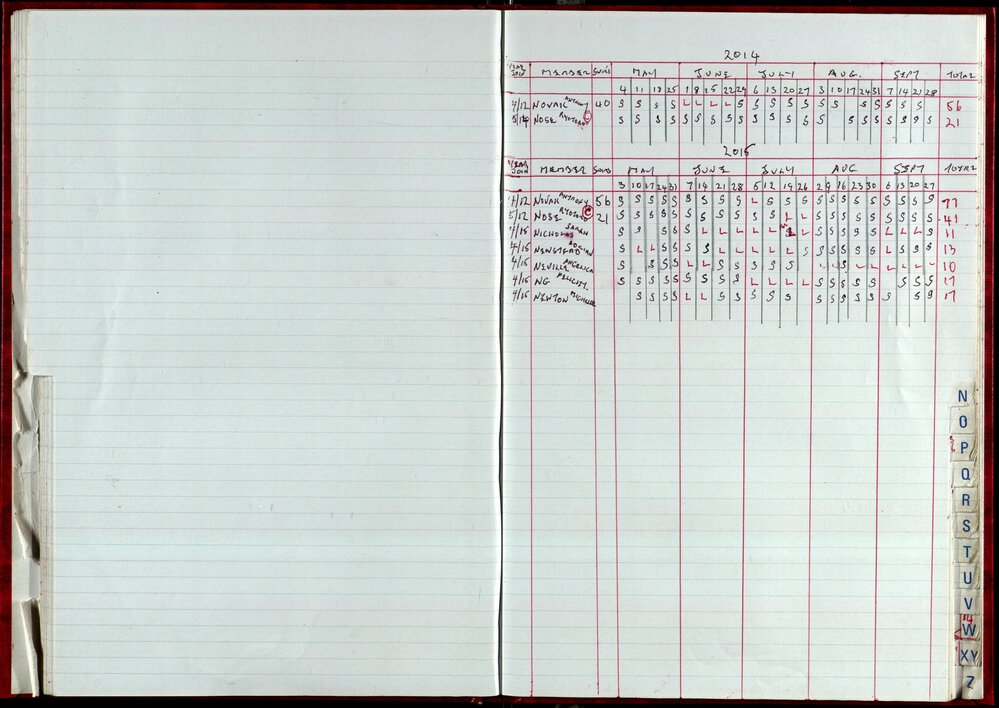 2014
YEAR JOIN MEMBER SWIMS MAY JUNE JULY AUG. SEPT TOTAL
4 11 18 25 1 8 15 22 29 6 13 20 27 3 10 17 24 31 7 14 21 28
4/12 NOVAK ANTHONY 40 S S S S L L L L S S S S S S S S S S S S 56
NOSE S S S S S S S S S S S S S S S S S S S S S 21
2015
YEAR JOIN MEMBER SWIMS MAY JUNE JULY AUG SEPT TOTAL
3 10 17 24 31 7 14 21 28 5 12 19 26 2 9 16 23 30 6 13 20 27
4/12 NOVAK ANTHONY 56 S S S S S S S S S L S S S S S S S S S S S S 77
5/12 NOSE 21 S S S S S S S S S S S L L S S S S S S S S S 41
4/15 NICHOLAS SARAH S S S S S L L L L L L L S S S S S L L L S 11
4/15 NEWSTEAD ADRIAN S L L S S S S L L L L L S S S S S S L L L L 13
4/15 NEVILLE ANGELICA S S S S L L S S S S S L L S L L L L L L 10
4/15 NG FELICITY. S S S S S S S S S L L L L S S S S S S S S 17
4/15 NEWTON MICHELLE S S S S L L S S S S S S S S S S S S S 17
N
O
P
Q
R
S
T
U
V
W
XY
Z